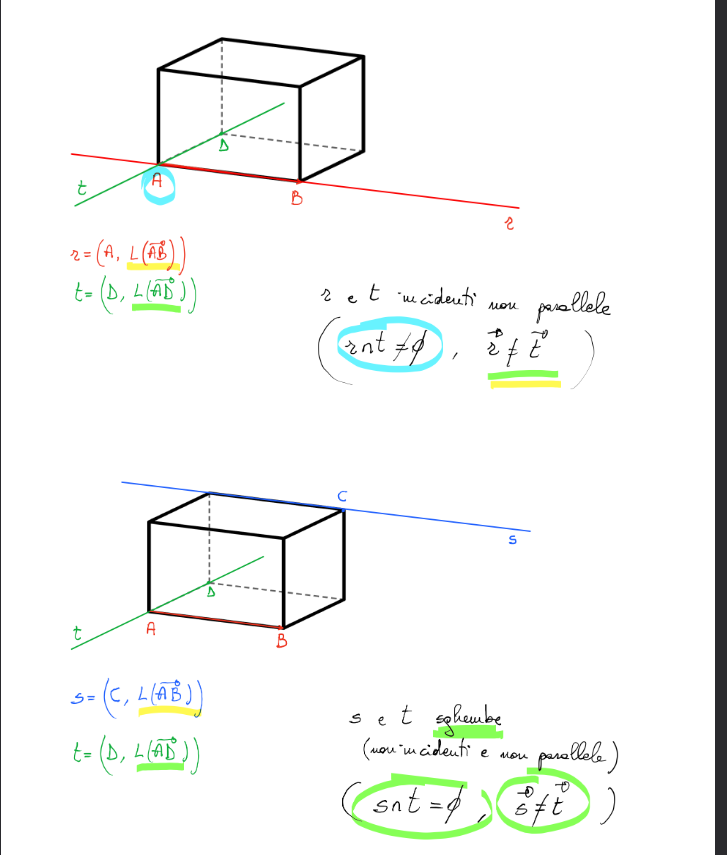 D
t
A
B
r
r = (A, L(A⃗B⃗))
t = (D, L(A⃗D⃗))
r e t incidenti non parallele
(r∩t ≠ ∅, r⃗ ≠ t⃗)
C
s
D
t
A
B
s = (C, L(A⃗B⃗))
t = (D, L(A⃗D⃗))
s e t sghembe
(non incidenti e non parallele)
(s∩t = ∅, s⃗ ≠ t⃗)